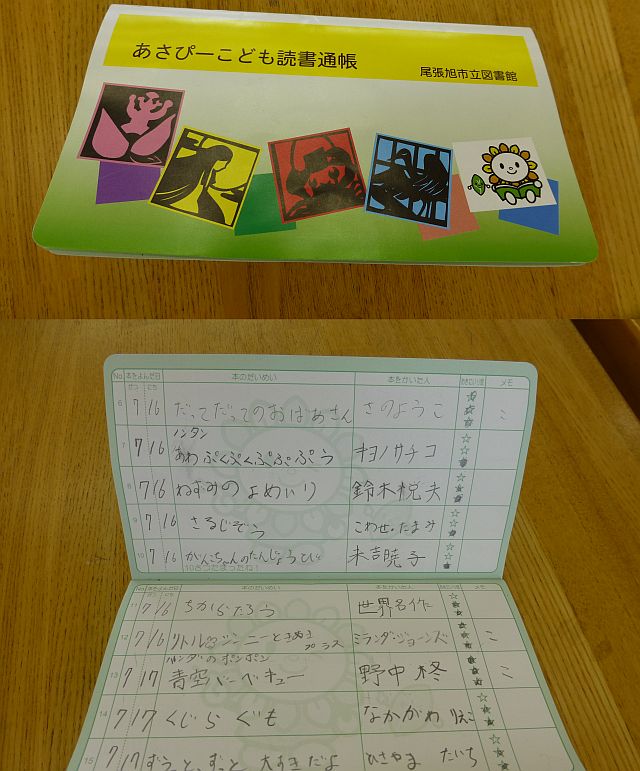 あさぴーこども読書通帳
尾張旭市立図書館
No. 本をよんだ日 本のだいめい 本をかいた人 メモ
がつ にち
6 7 16 だってだってのおばあさん さのようこ ☆☆☆ こ
ノンタン
7 7 16 あわぷくぷくぷぷぷう キヨノサチコ ☆☆☆
8 7 16 ねずみのよめいり 鈴木悦夫 ☆☆☆
9 7 16 さるじぞう こわせ・たまみ ☆☆☆
10 7 16 がんこちゃんのたんじょうび 末吉暁子 ☆☆☆
10さつたまったね!
No. 本をよんだ日 本のだいめい 本をかいた人 メモ
がつ にち
11 7 16 ちからたろう 世界名作 ☆☆☆
12 7 16 リトル・ジーニーときめき ミランダ・ジョーンズ ☆☆☆ こ
プラス
パンダのポンポン
13 7 17 青空バーベキュー 野中柊 ☆☆☆ こ
14 7 17 くじらぐも なかがわりえこ ☆☆☆
15 7 17 ずうっと、ずっと、大すきだよ ひさやま たいち ☆☆